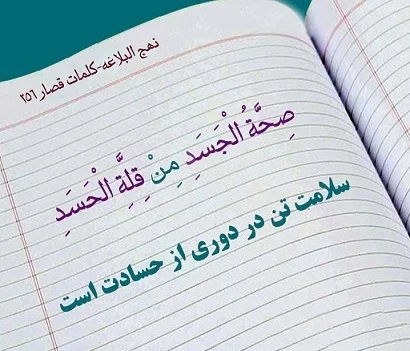 نهج البلاغه-کلمات قصار ۲۵۶
صِحَّةُ الْجَسَدِ مِنْ قِلَّةِ الْحَسَدِ
سلامت تن در دوری از حسادت است